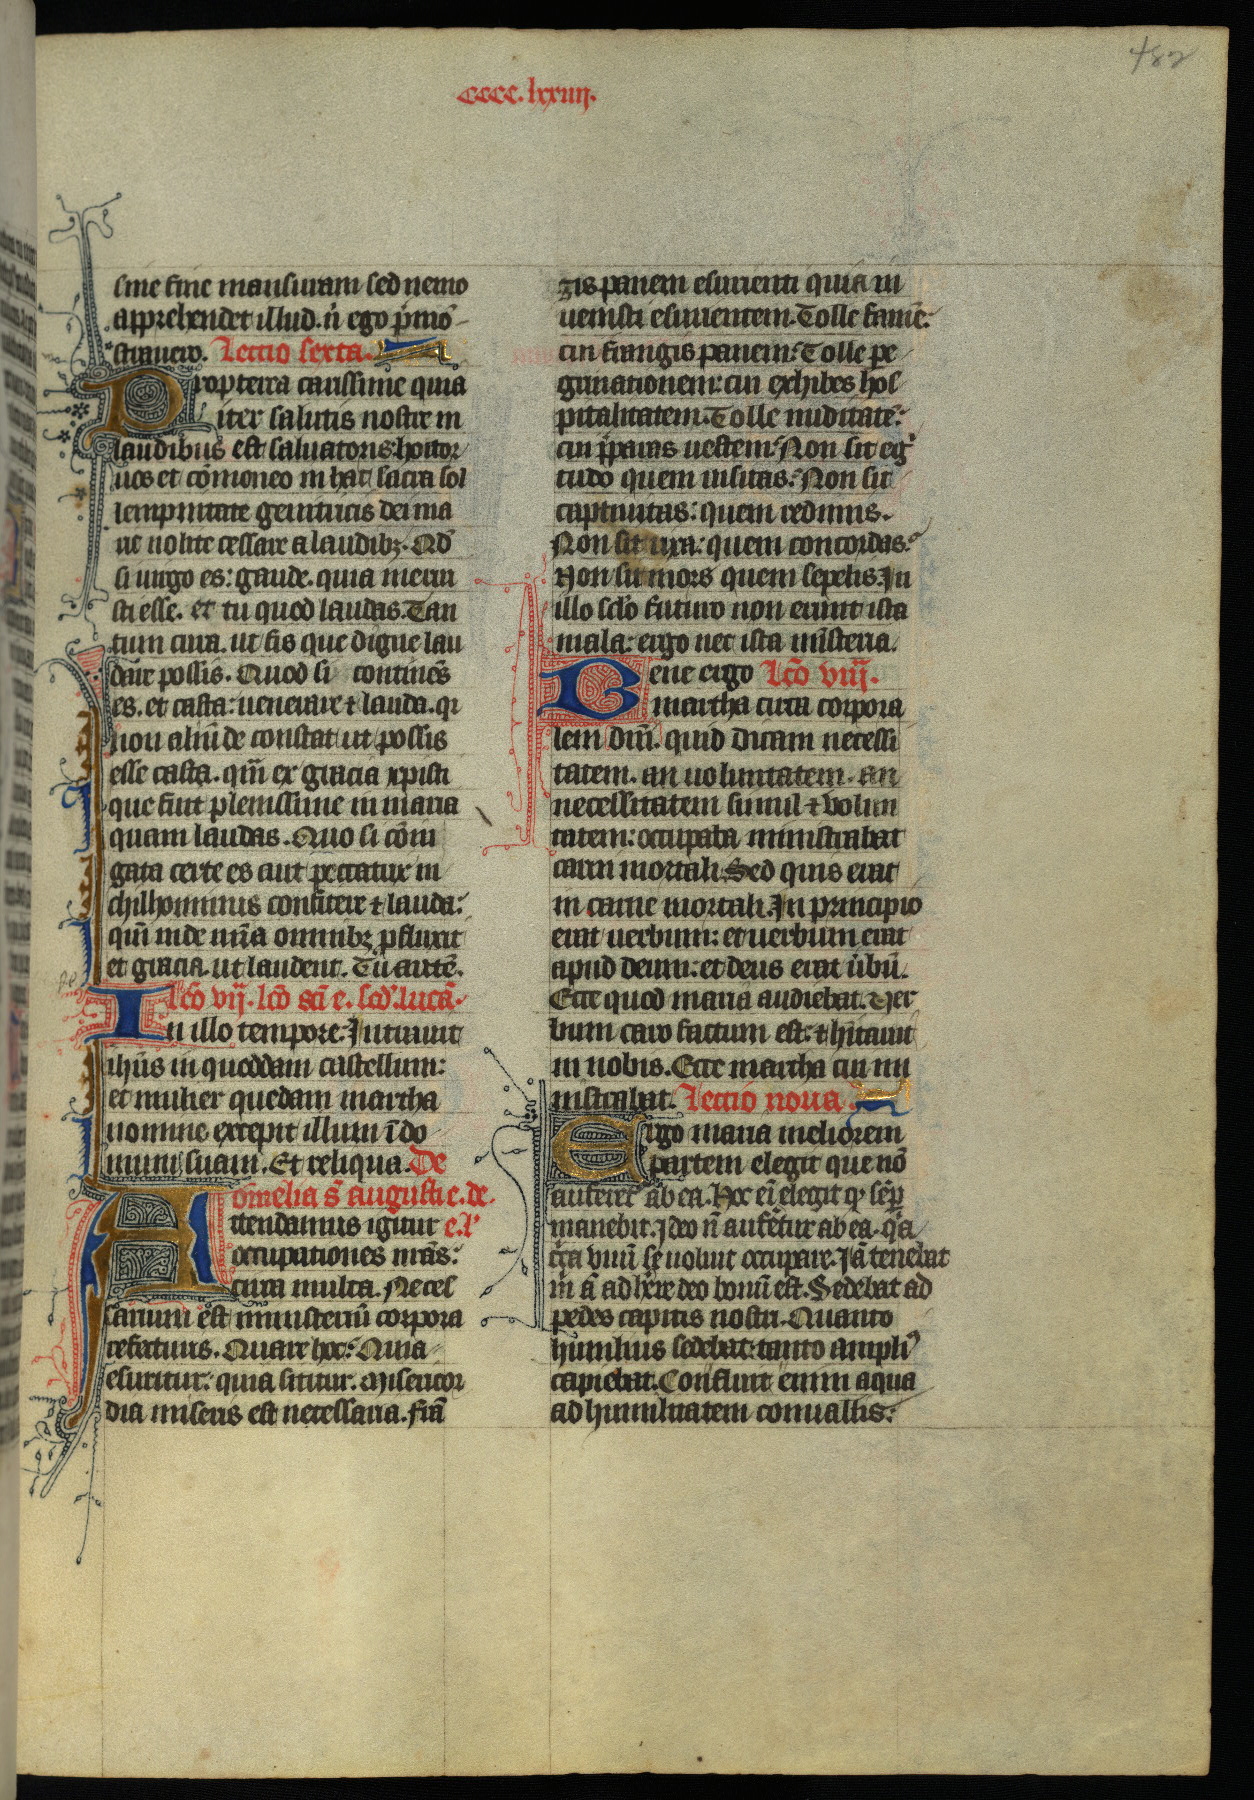 482
cccc.lxxiiij.
sine fine mansuram sed nemo
apprehendet illud. n̄ ego p̄mō
strauero. Lectio sexta.
Propterea carissime quia
iter salutis nostre in
laudibus est saluatoris: hortor
uos et cōmoneo in hac sacra sol
lempnitate genitricis dei ma
rie nolite cessare a laudibꝫ. Qd̄
si uirgo es: gaude. quia meru
isti esse. et tu quod laudas. Tan
tum cura. ut sis que digne lau
dare possis. Quod si continēs
es. et casta: uenerare ⁊ lauda. qr
non aliūde constat ut possis
esse casta. qm̄ ex gracia xpisti
que fuit plenissime in maria
quam laudas. Quo si cōiu
gata certe es aut peccatrix in
chilhominus confitere ⁊ lauda:
qm̄ inde mīa omnibꝫ ꝓfluxit
et gracia. ut laudent. Tu autē.
Lcō vij. lcō scī e. scd'. lucā.
In illo tempore. Intrauit
ihūs in quoddam castellum:
et mulier quedam martha
nomine excepit illum ī do
mum suam. Et reliqua. De
ōmelia s̄ augusti e. de.
Attendamus igitur e. l'
occupationes nrās:
circa multa. Neces
sarium est ministeriū corpora
refecturis. Quare hoc: Quia
esuritur: quia sititur. Misericor
dia miseris est necessaria. Frā
gis panem esurienti quia in
uenisti esurientem. Tolle famē:
cui frangis panem: Tolle pe
grinationem: cui exhibes hos
pitalitatem. Tolle nuditatē:
cui p̄paras uestem: Non sit eg̓
tudo quem uisitas: Non sit
captiuitas: quem redimis.
Non sit rixa: quem concordas:
Non sit mors quem sepelis. In
illo sclō futuro non erunt ista
mala: ergo nec ista misteria.
Bene ergo Lcō viij.
martha circa corpora
lem dnī. quid dicam necessi
tatem. an uoluntatem. an
necessitatem simul ⁊ volun
tatem: occupata ministrabat
carni mortali. Sed quis erat
in carne mortali. In principio
erat uerbum: et uerbum erat
apud deum: et deus erat ūbū.
Ecce quod maria audiebat. Ver
bum caro factum est: ⁊ hītauit
in nobis. Ecce martha cui mi
nistrabat. Lectio nona.
Ergo maria meliorem
partem elegit que nō
auferet ab ea. Hoc ei elegit qͥ sēꝑ
manebit. Ideo n̄ aufertur ab ea. q̄a
circa vnū se uoluit occupare. Iā tenebat
m̄ ā adhēre deo bonū est. Sedebat ad
pedes capitis nostri. Quanto
humilius sedebat: tanto ampli⁹
capiebat. Confluit enim aqua
ad humilitatem conuallis: